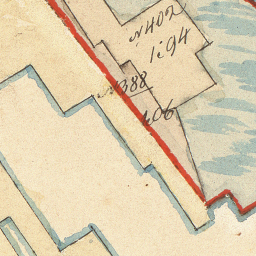 N 402
1:94
N 388
406